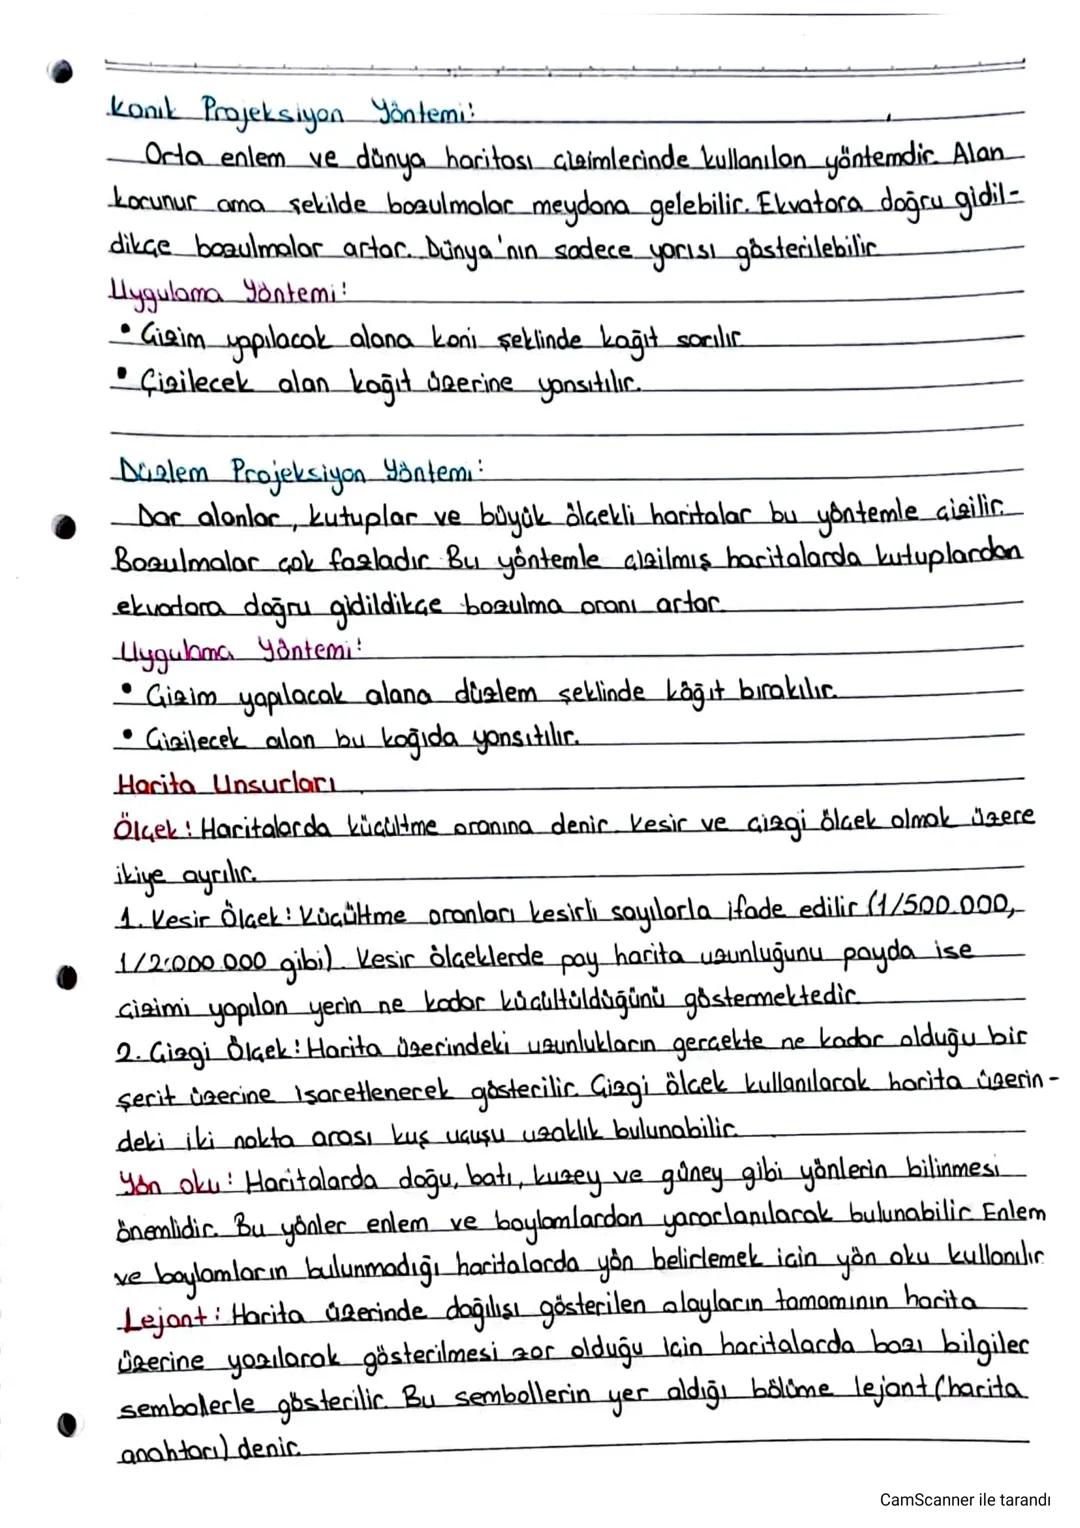 Konik Projeksiyon Yöntemi:
Orta enlem ve dünya haritası çizimlerinde kullanılan yöntemdir. Alan
korunur ama şekilde bozulmalar meydana gelebilir. Ekvatora doğru gidil-
dikçe bozulmalar artar. Dünya'nın sadece yarısı gösterilebilir.
Uygulama Yöntemi:
• Çizim yapılacak alana koni şeklinde kağıt sarılır.
• Çizilecek alan kağıt üzerine yansıtılır.
Düzlem Projeksiyon Yöntemi:
Dar alanlar, kutuplar ve büyük ölçekli haritalar bu yöntemle çizilir.
Bozulmalar çok fazladır. Bu yöntemle çizilmiş haritalarda kutuplardan
ekvatora doğru gidildikçe bozulma oranı artar.
Uygulama Yöntemi:
• Çizim yapılacak alana düzlem şeklinde kâğıt bırakılır.
• Çizilecek alan bu kağıda yansıtılır.
Harita Unsurları
Ölçek: Haritalarda küçültme oranına denir. Kesir ve çizgi ölçek olmak üzere
ikiye ayrılır.
1. Kesir Ölçek: Küçültme oranları kesirli sayılarla ifade edilir (1/500.000,
1/2.000.000 gibi). Kesir ölçeklerde pay harita uzunluğunu payda ise
çizimi yapılan yerin ne kadar küçültüldüğünü göstermektedir.
2. Çizgi Ölçek: Harita üzerindeki uzunlukların gerçekte ne kadar olduğu bir
şerit üzerine işaretlenerek gösterilir. Çizgi ölçek kullanılarak harita üzerin-
deki iki nokta arası kuş uçuşu uzaklık bulunabilir.
Yön oku: Haritalarda doğu, batı, kuzey ve güney gibi yönlerin bilinmesi
önemlidir. Bu yönler enlem ve boylamlardan yararlanılarak bulunabilir. Enlem
ve boylamların bulunmadığı haritalarda yön belirlemek için yön oku kullanılır.
Lejant: Harita üzerinde dağılışı gösterilen olayların tamamının harita
üzerine yazılarak gösterilmesi zor olduğu için haritalarda bazı bilgiler
sembolerle gösterilir. Bu sembollerin yer aldığı bölüme lejant (harita
anahtarı) denir.
CamScanner ile tarandı